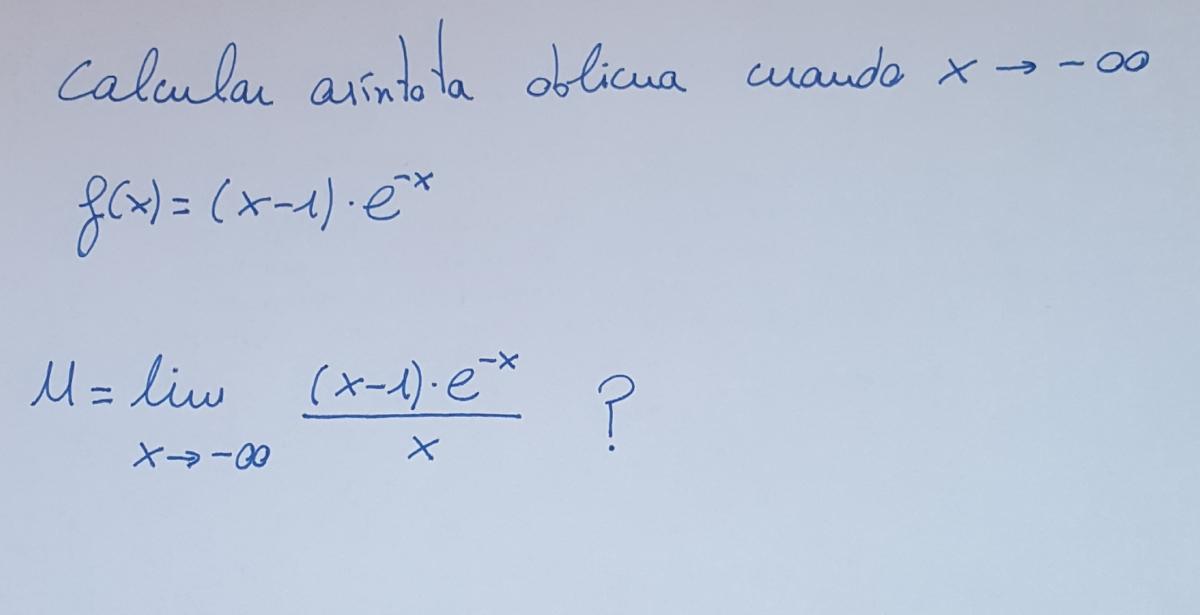 Calcular asíntota oblicua cuando x → -∞
f(x) = (x-1) · e^-x
M = lim x→-∞ (x-1) · e^-x / x ?